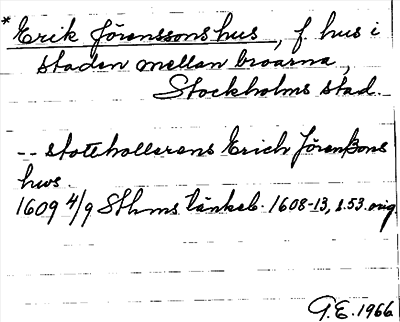 * Erik Jöranssons hus, f. hus i
staden mellan broarna,
Stockholms stad.
-- stotehollerens Erich Jöranßons
hws.
1609 4/9 Sthms tänkeb. 1608-13, s. 53. orig.
G.E. 1966